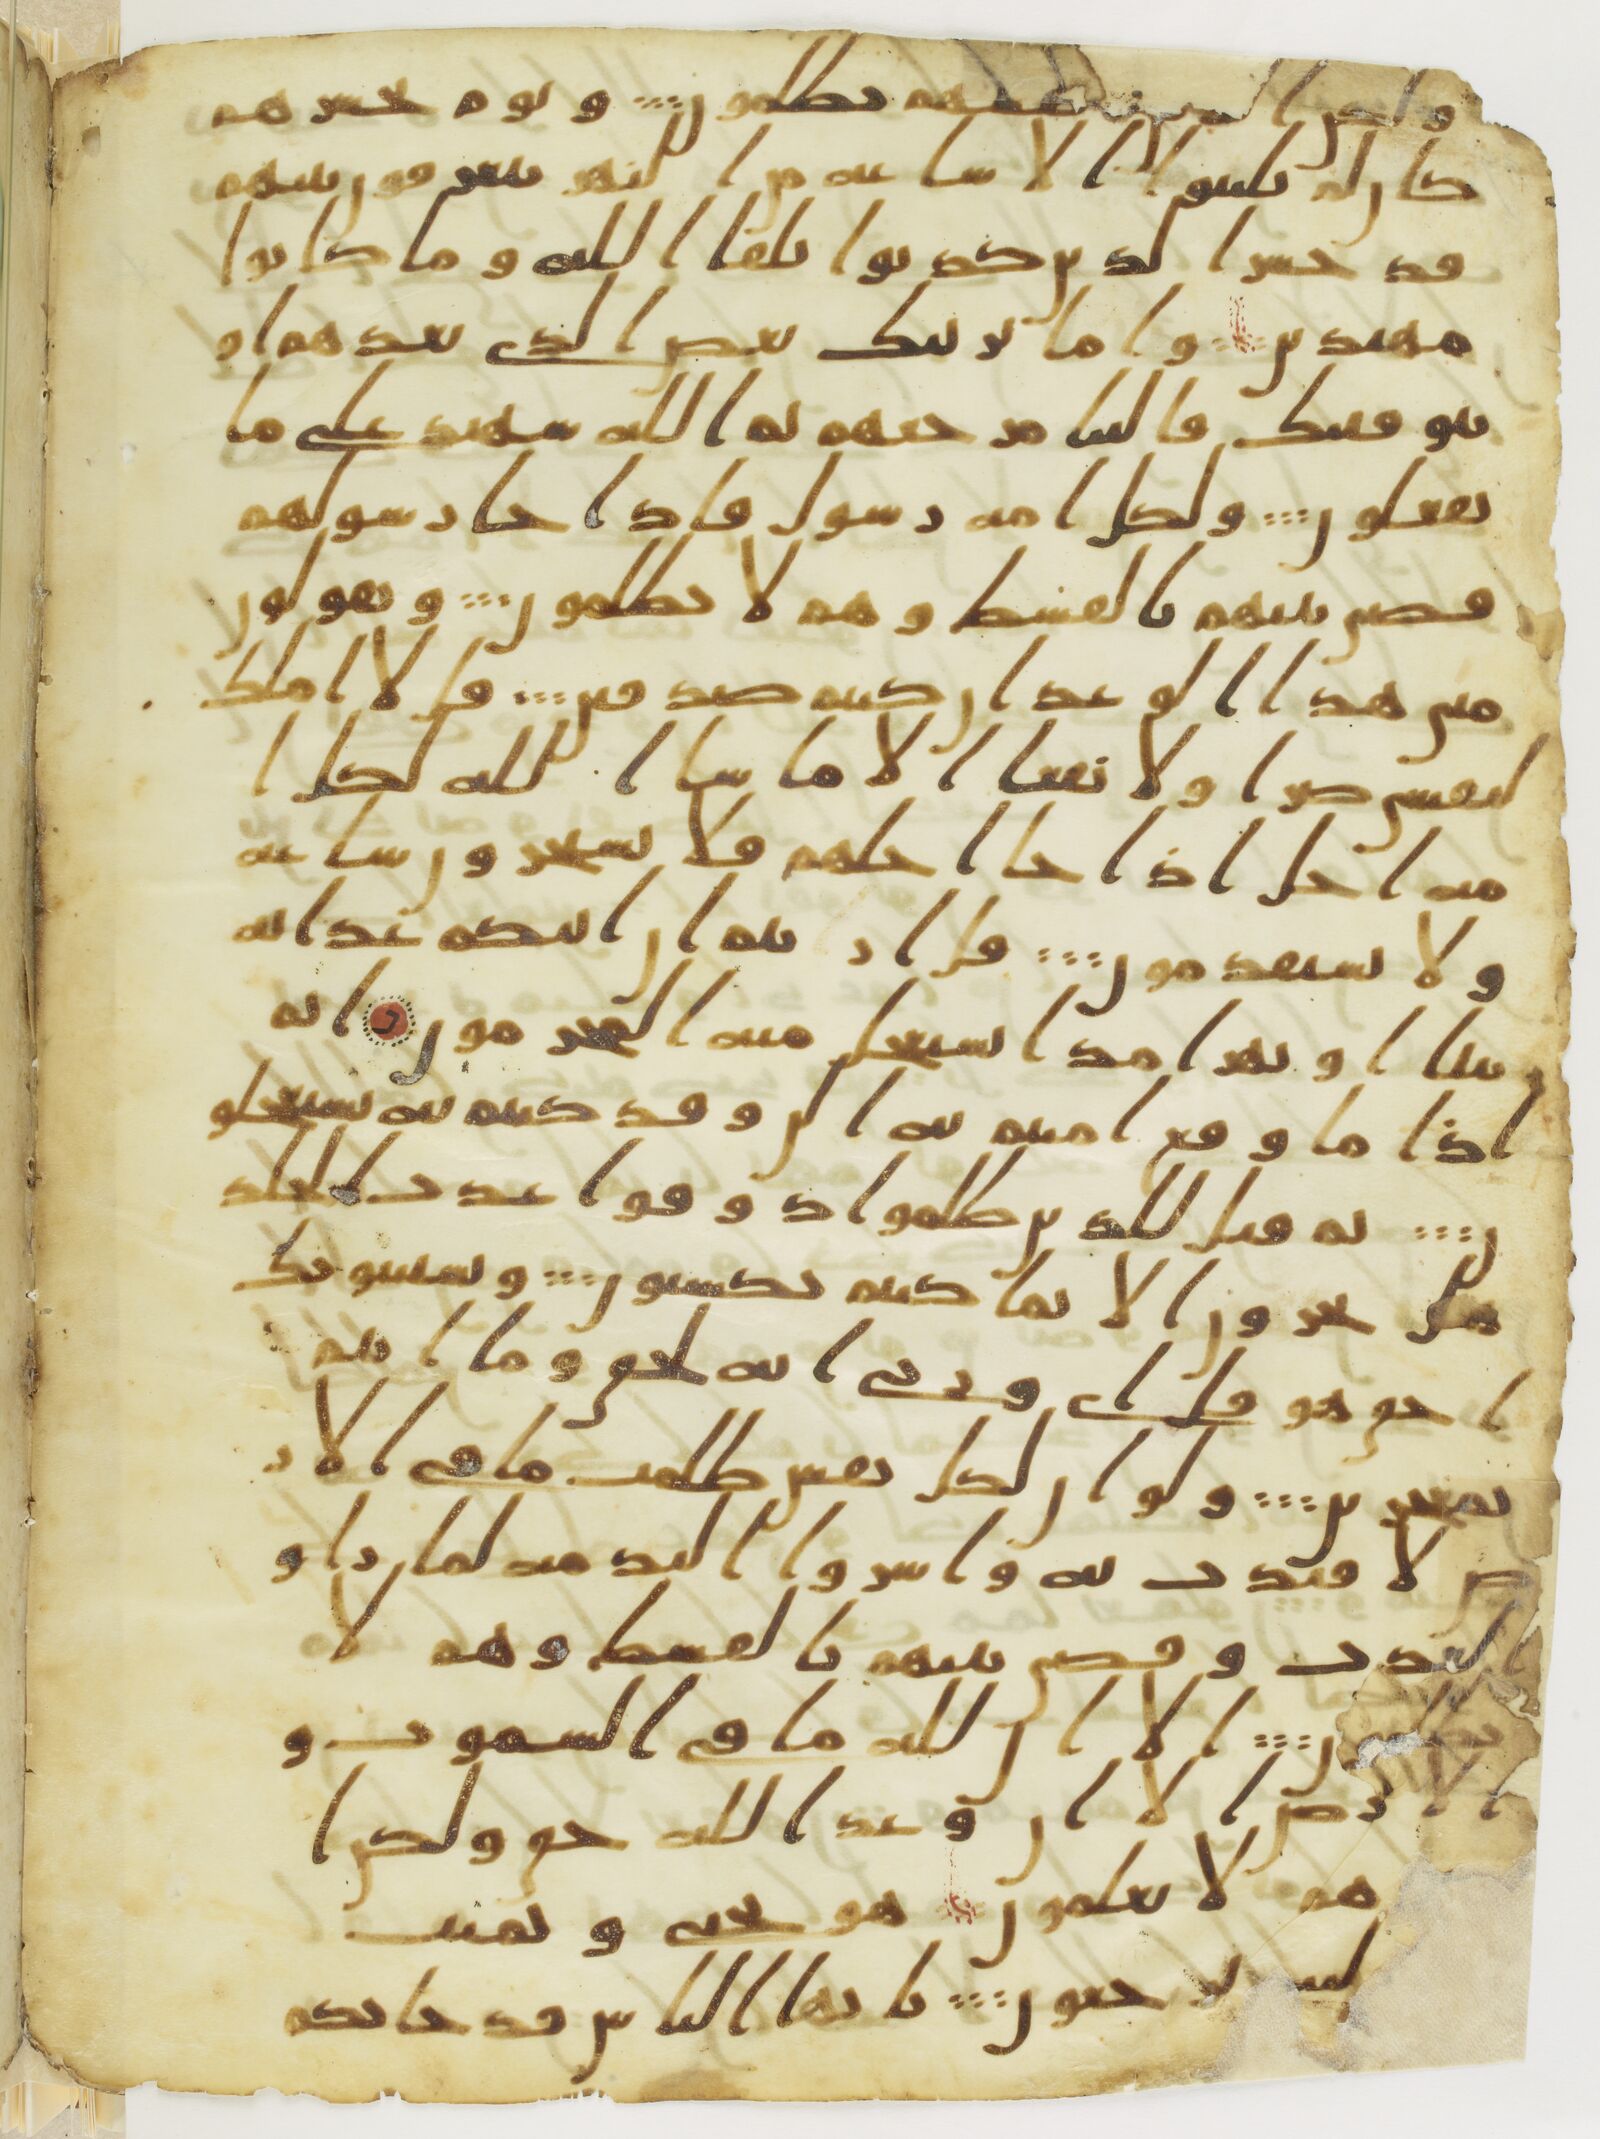 ولكن ا انفسهم يظلمون ويوم يحشرهم
كان لم يلبثوا الا ساعه من النهر يتعرفون بينهم
قد خسر الذين كذبوا بلقا الله وما كانوا
مهتدين واما نرينك بعض الذي نعدهم او
نتوفينك فالينا مرجعهم ثم الله شهيد على ما
يفعلون ولكل امه رسول فاذا جا رسولهم
قضي بينهم بالقسط وهم لا يظلمون ويقولون
متى هذا الوعد ان كنتم صدقين قل لا املك
لنفسي ضرا ولا نفعا الا ما شا الله لكل ا
مه اجل اذا جا اجلهم فلا يستخرون ساعه
ولا يستقدمون قل اريتم ان اتيكم عذابه
بيتا او نهرا مذا يستعجل منه المجرمون اثم
اذا ما وقع امنتم به الن وقد كنتم به تستعجلو
ن ثم قيل للذين ظلموا ذوقوا عذب الخلد
هل تجزون الا بما كنتم تكسبون ويستنبونك
احق هو قل اي وربي انه لحق وما انتم
بمعجزين ولو ان لكل نفس ظلمت ما في الار
ض لافتدت به واسروا الندمه لما راو
العذب وقضي بينهم بالقسط وهم لا
يظلمون الا ان لله ما في السموت و
الارض الا ان وعد الله حق ولكن ا
هم لا يعلمون هو يحيي ويميت
اليه ترجعون يايها الناس قد جاتكم